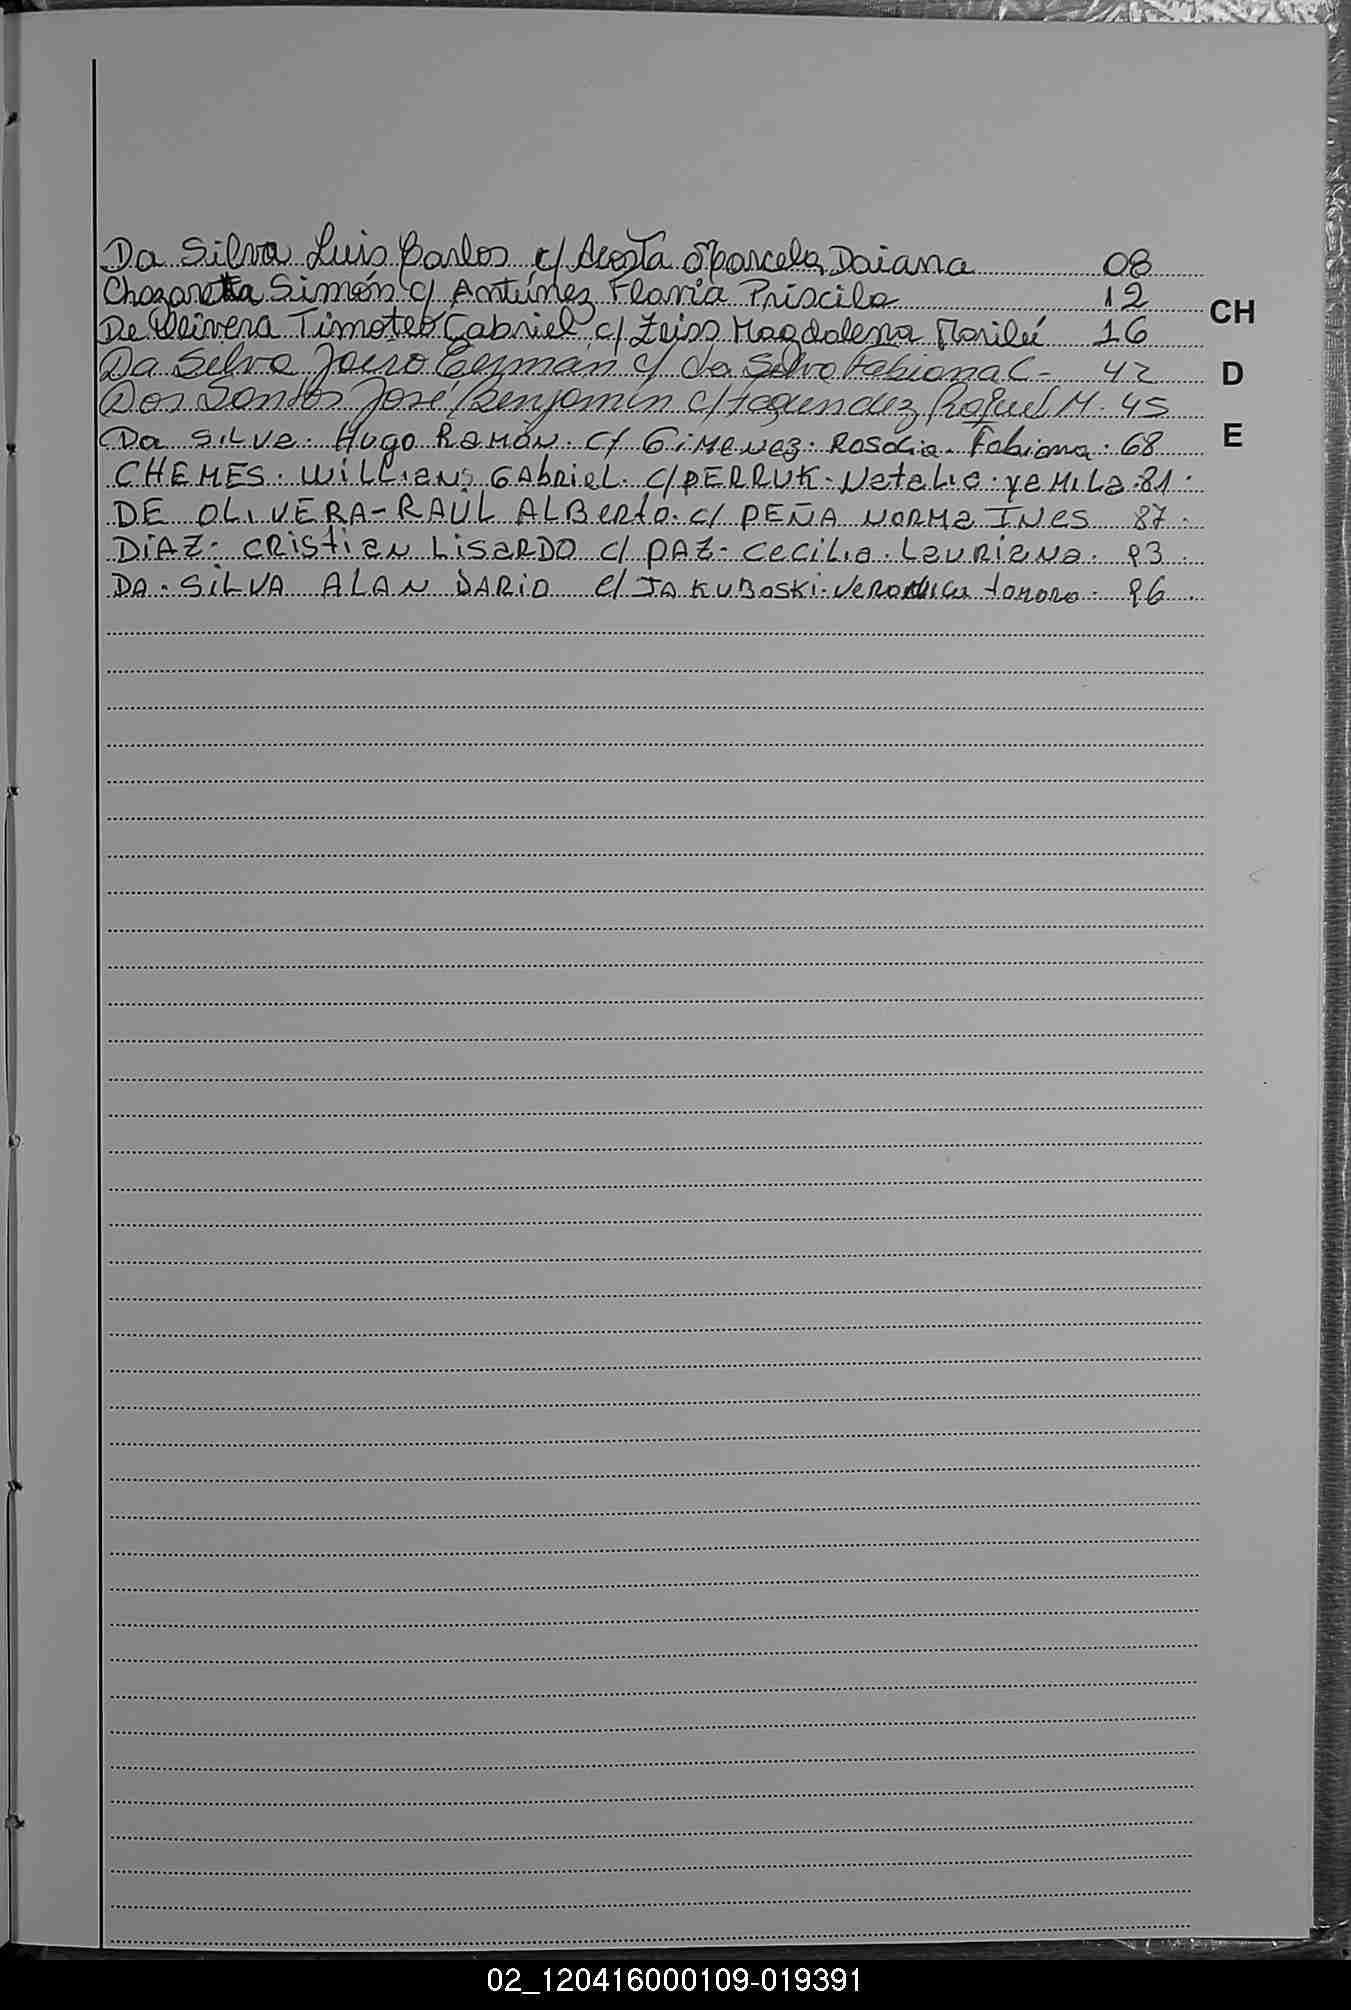 Da Silva Luis Carlos c/ Acosta Marcela Daiana 08
Chazarreta Simón c/ Antúnez Flavia Priscila 12
CH
De Olivera Timoteo Gabriel c/ Zeiss Magdalena Marilú 16
Da Silva Jairo German c/ da Silva Fabiana C- 42
D
Dos Santos José Benjamin c/ Fagundez M. 45
Da SILVa. Hugo RaMóN. c/ GiMeNez. Rosalia. Fabiana. 68
E
CHEMES. WiLLianS GAbriel. c/ PERRUK. Natalia. yeMiLa. 81.
DE OLIVERA-RAÚL ALBerto. c/ PEÑA NORMa INes 87.
DiAZ. CRistiaN LisaRDO c/ PAZ. CeCiLia. LauRiaNa. 93.
DA. SiLVA ALAN DARiO c/ JAKUBoski. VeRoNica tamara. 96.
02_120416000109-019391